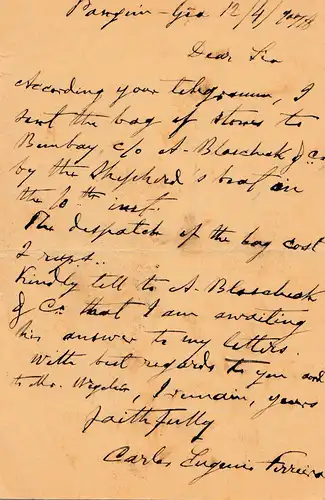 Pangim - Goa 12/4/
Dear Sir
According your telegramm, I
sent the bag of stones to
Bombay, c/o A. Blascheck & co
by the Shepherd's boat on
the 10th inst.
The dispatch of the bag cost
2 rups..
Kindly tell to A. Blascheck
& Co. that I am awaiting
his answer to my letters.
With best regards to you and
to Mr. Wegelin, I remain, yours
faithfully
Carlos Eugenio Ferreira